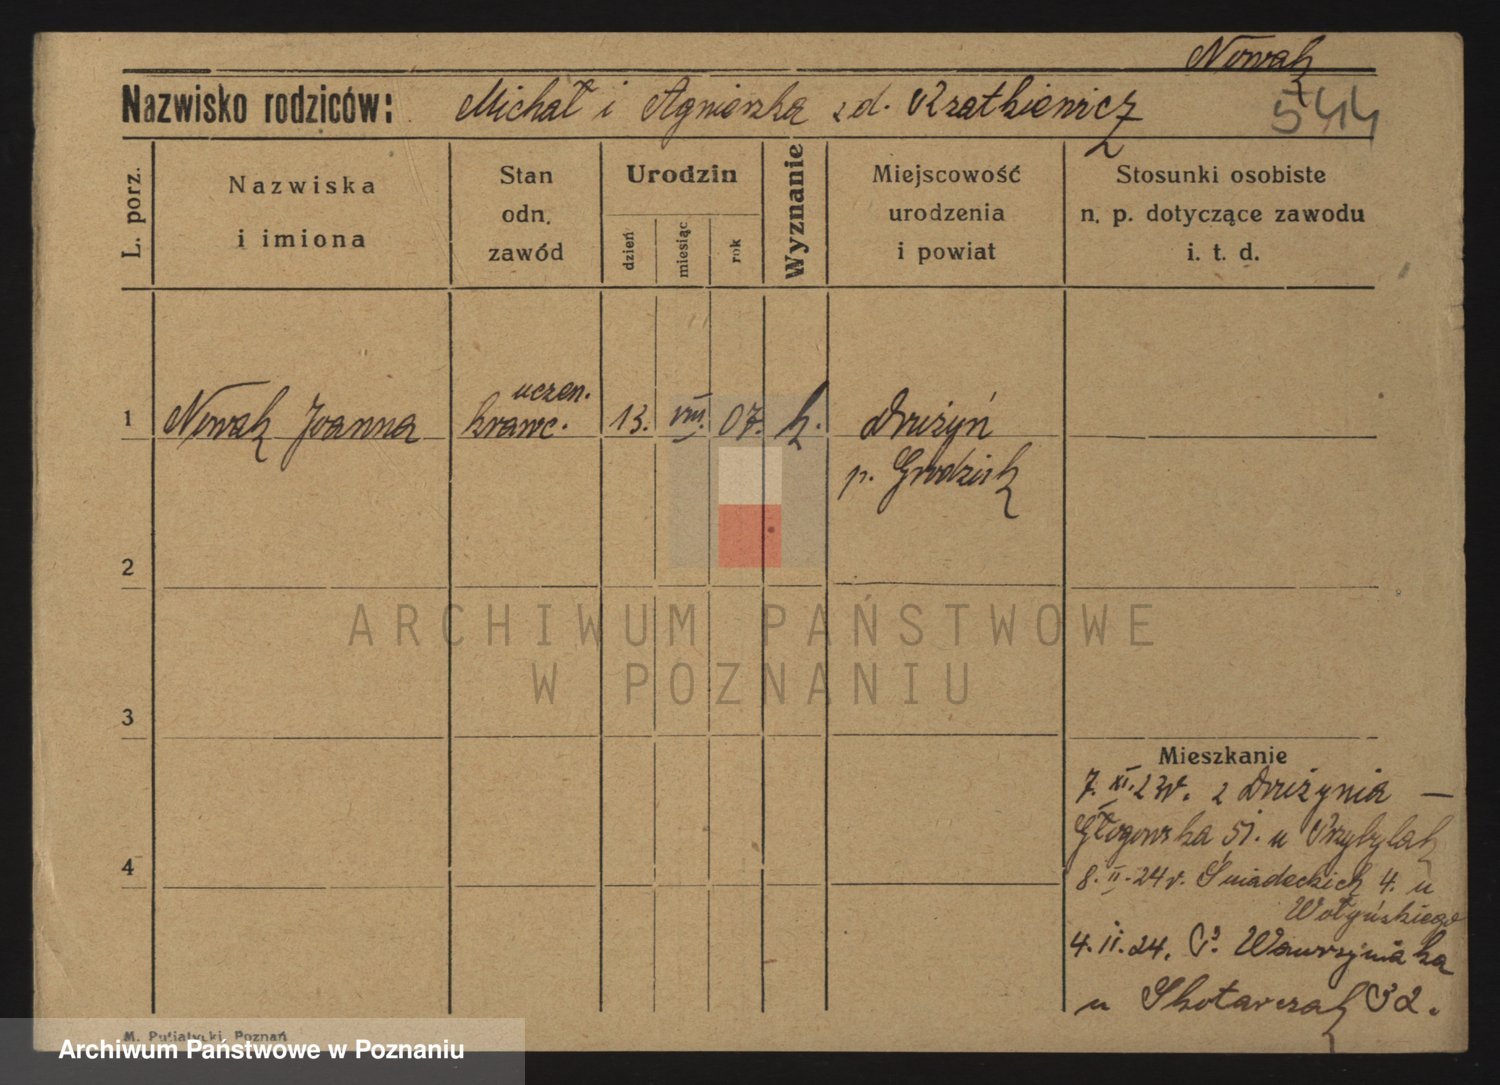 Nowak
Nazwisko rodziców: Michał i Agnieszka zd. Kratkiewicz
544
L. porz.
Nazwiska
i imiona
Stan
odn.
zawód
Urodzin
dzień
miesiąc
rok
Wyznanie
Miejscowość
urodzenia
i powiat
Stosunki osobiste
n. p. dotyczące zawodu
i. t. d.
uczen.
1 Nowak Joanna krawc. 13. VIII. 07. k. Drużyń
p. Grodzisk
2
ARCHIWUM PAŃSTWOWE
W POZNANIU
3
Mieszkanie
7. XI. 23r. z Drużynia —
Głogowska 51. u Przybylak
4
8. II. 24r. Śniadeckich 4. u
Wołyńskiego
4. II. 24. Wawrzyniaka
u Skotarczak 32.
M. Putiatycki, Poznań
Archiwum Państwowe w Poznaniu